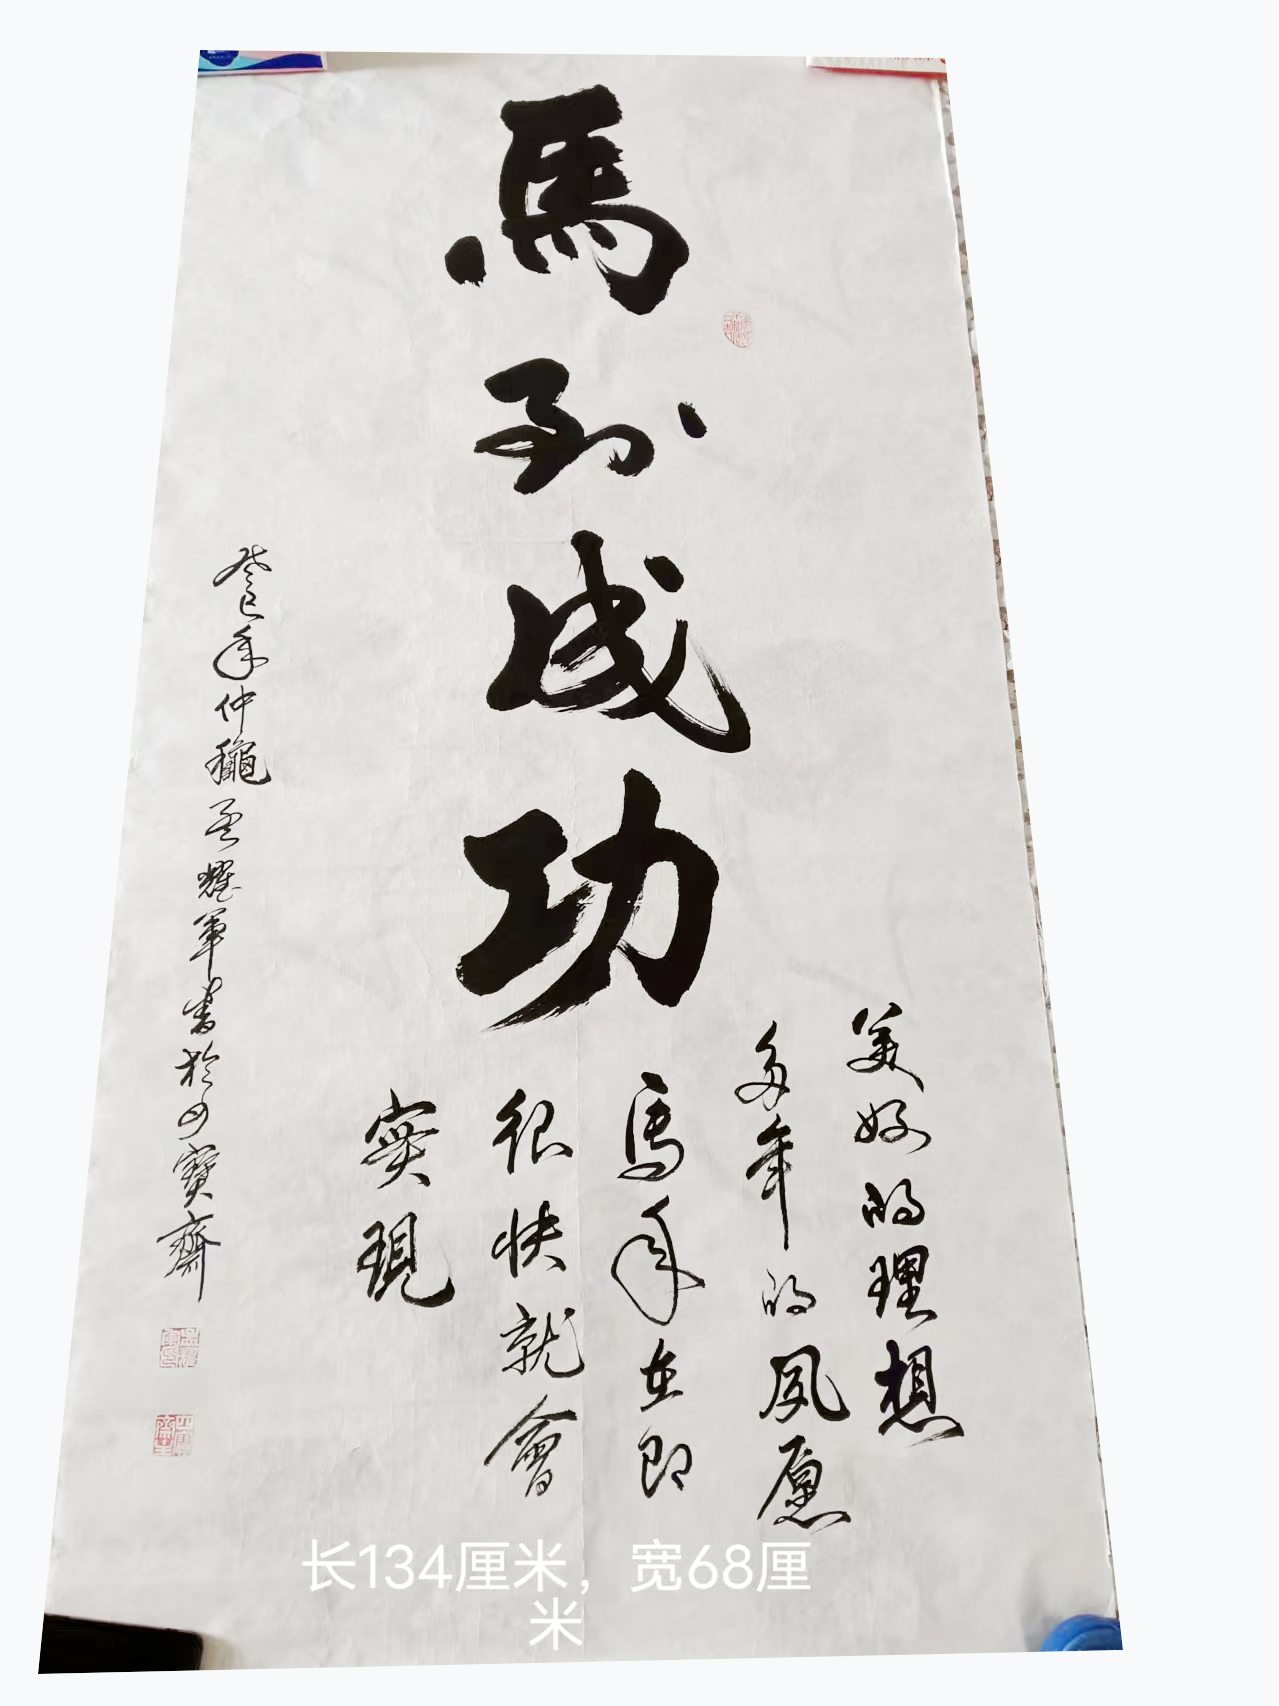 馬到成功
美好的理想
多年的夙愿
馬年在即
很快就會
实現
癸巳年仲龝孟耀軍書於四寶齋
长134厘米，宽68厘
米